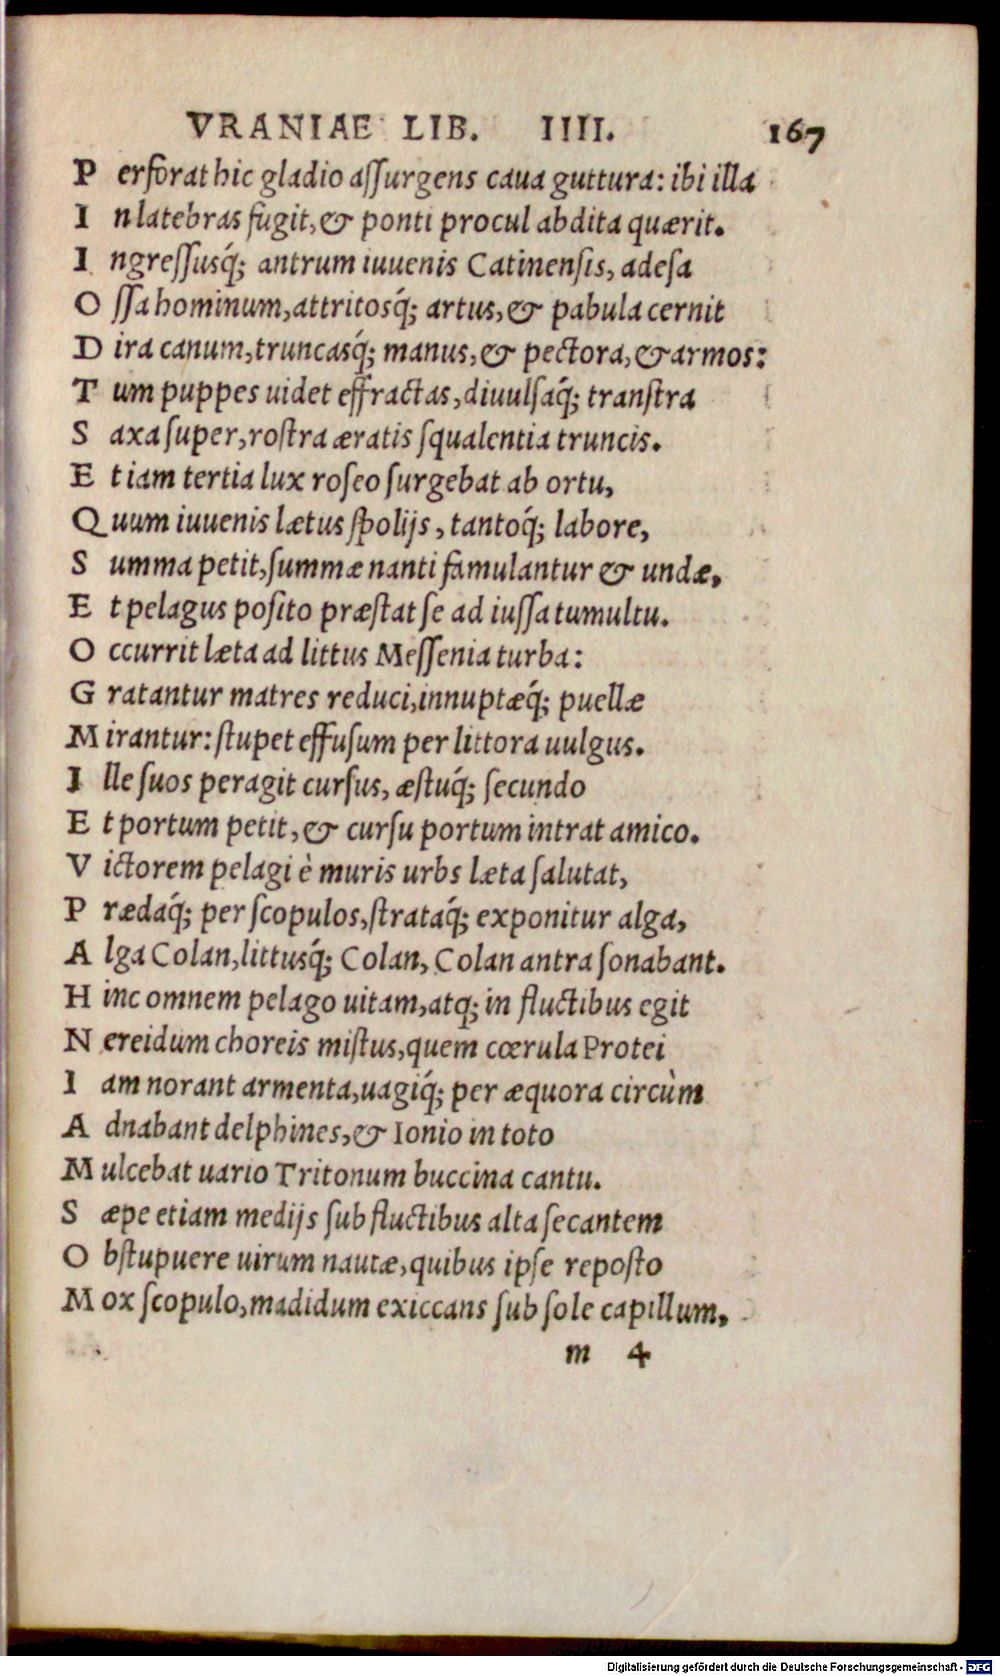 VRANIAE LIB. IIII. 167
P erforat hic gladio aſſurgens caua guttura: ibi illa
I n latebras fugit, & ponti procul abdita quærit.
I ngreſſusq́; antrum iuuenis Catinenſis, adeſa
O ſſa hominum, attritosq́; artus, & pabula cernit
D ira canum, truncasq́; manus, & pectora, & armos:
T um puppes uidet effractas, diuulſaq́; tranſtra
S axa ſuper, roſtra æratis ſqualentia truncis.
E tiam tertia lux roſeo ſurgebat ab ortu,
Q uum iuuenis lætus ſpolijs, tantoq́; labore,
S umma petit, ſummæ nanti famulantur & undæ,
E t pelagus poſito præſtat ſe ad iuſſa tumultu.
O ccurrit læta ad littus Meſſenia turba:
G ratantur matres reduci, innuptæq́; puellæ
M irantur: ſtupet effuſum per littora uulgus.
I lle ſuos peragit curſus, æſtuq́; ſecundo
E t portum petit, & curſu portum intrat amico.
V ictorem pelagi è muris urbs læta ſalutat,
P rædaq́; per ſcopulos, ſtrataq́; exponitur alga,
A lga Colan, littusq́; Colan, Colan antra ſonabant.
H inc omnem pelago uitam, atq; in fluctibus egit
N ereidum choreis miſtus, quem cœrula Protei
I am norant armenta, uagiq́; per æquora circùm
A dnabant delphines, & Ionio in toto
M ulcebat uario Tritonum buccina cantu.
S æpe etiam medijs ſub fluctibus alta ſecantem
O bſtupuere uirum nautæ, quibus ipſe repoſto
M ox ſcopulo, madidum exiccans ſub ſole capillum,
m 4
Digitalisierung gefördert durch die Deutsche Forschungsgemeinschaft - DFG